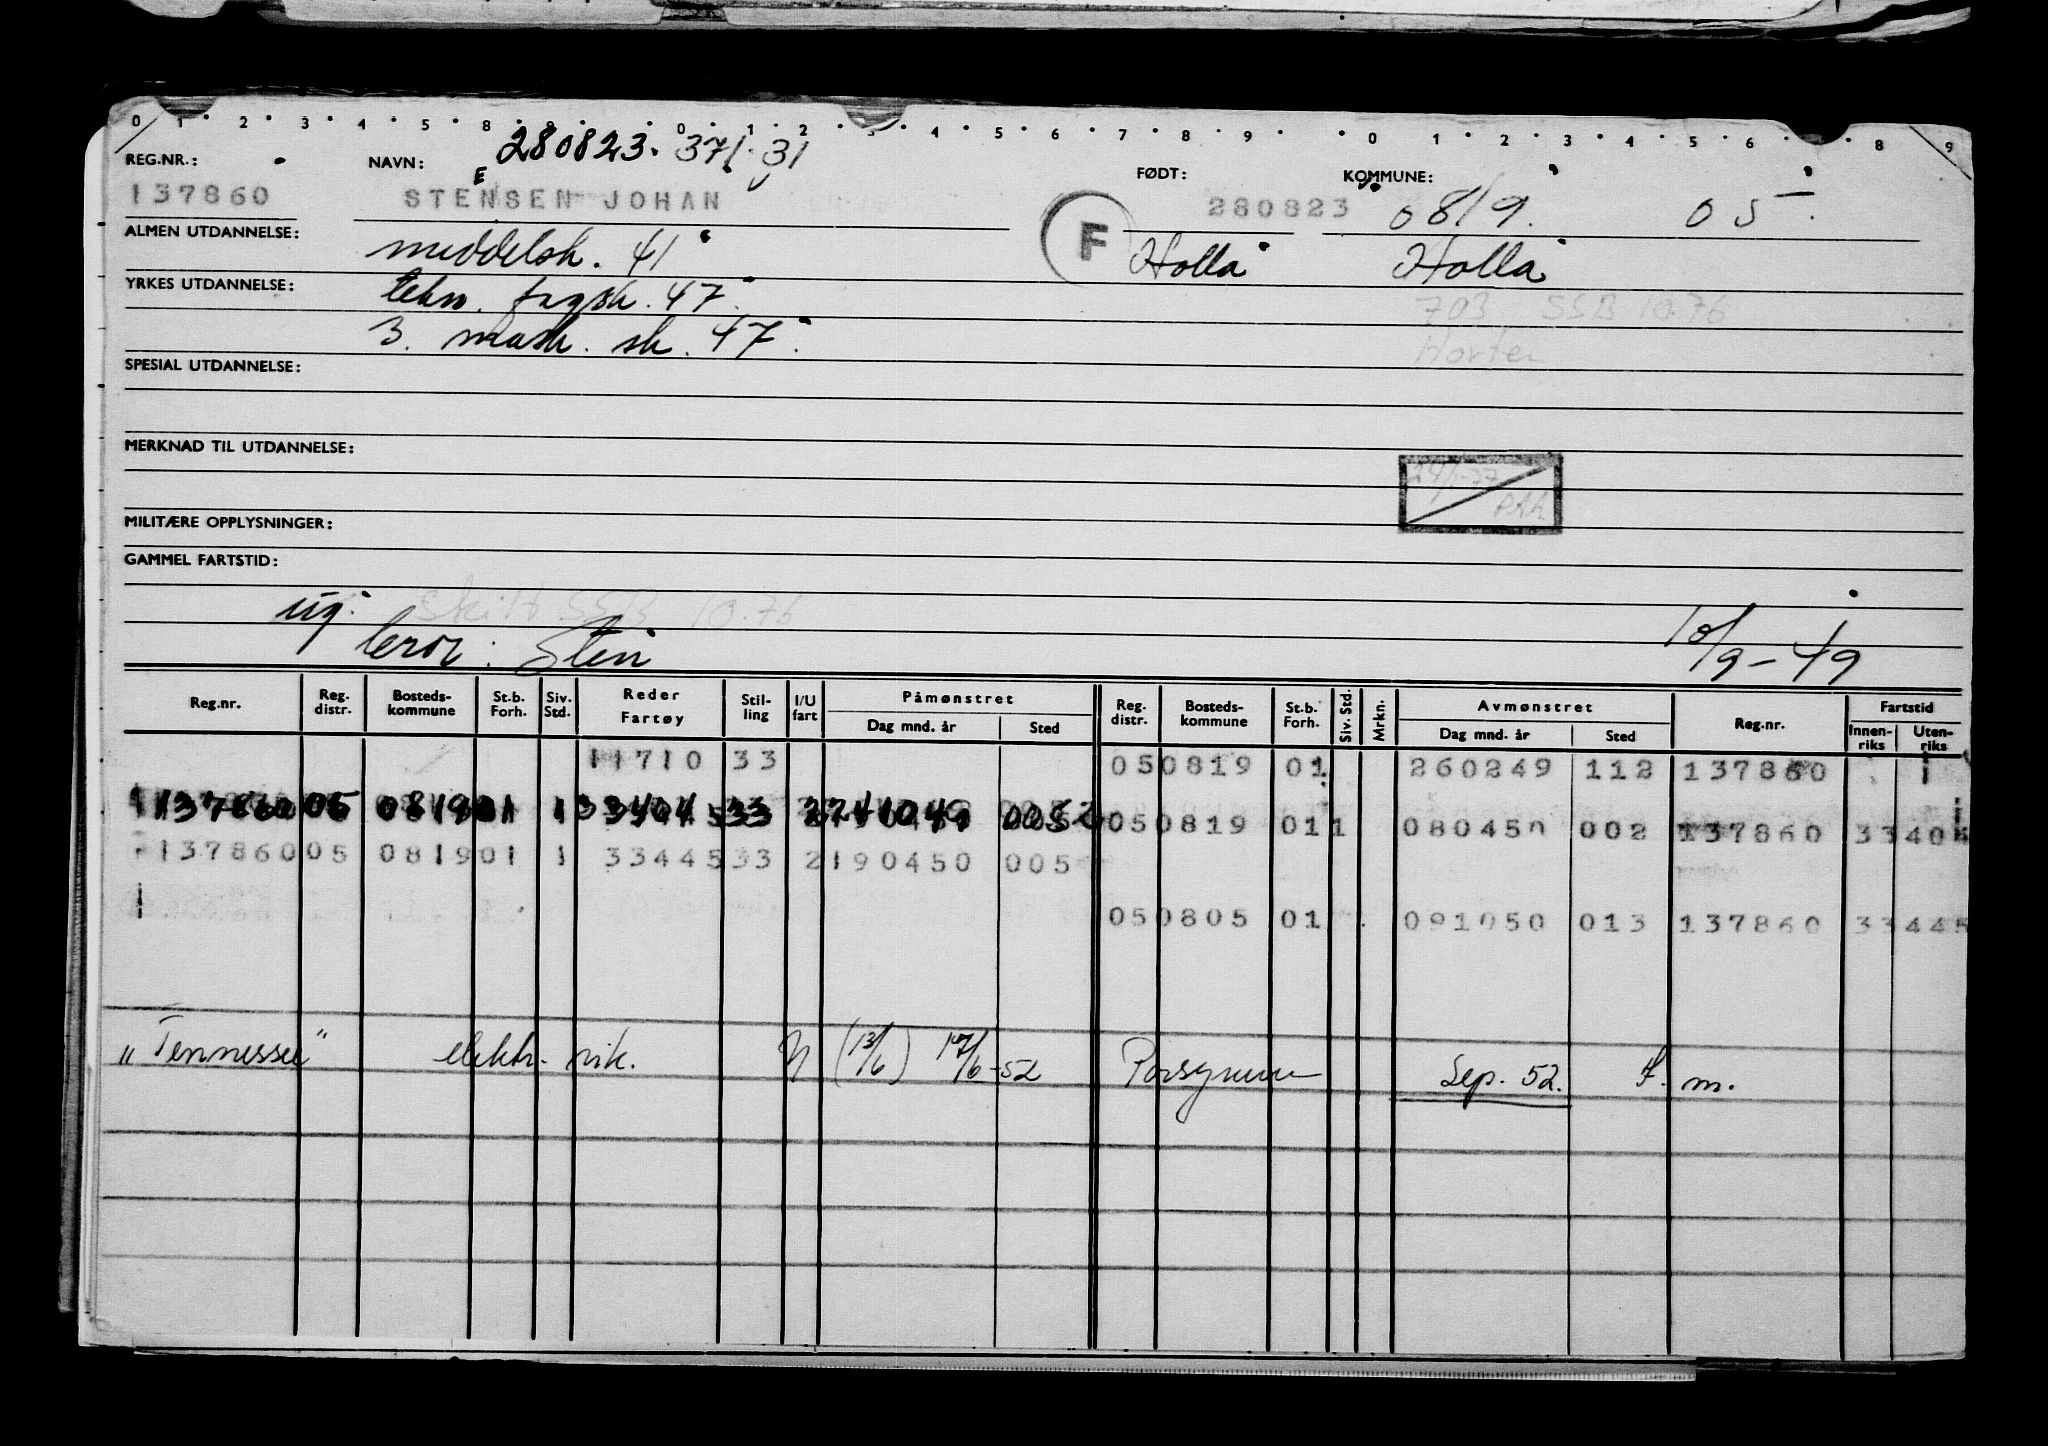 0 1 2 3 4 5 8 9 0 1 2 3 4 5 6 7 8 9 0 1 2 3 4 5 6 7 8 9
280823. 371.31
REG.NR.: NAVN: FØDT: KOMMUNE:
137860 STENSEN JOHAN 280823 0819. 05
E
F
ALMEN UTDANNELSE: middelsk. 41 Holla Holla
YRKES UTDANNELSE: tekn. fagsk. 47
703 SSB 10.76
3. mask. sk. 47 Horten
SPESIAL UTDANNELSE:
MERKNAD TIL UTDANNELSE:
PAA
MILITÆRE OPPLYSNINGER:
GAMMEL FARTSTID:
ug. Skilt SSB 10.76
: Stein 10/9-49
Reg.nr. Reg. distr. Bosteds- kommune St.b. Forh. Siv. Std. Reder Fartøy Stil- ling I/U fart Påmønstret Dag mnd. år Sted Reg. distr. Bosteds- kommune St.b. Forh. Siv. Std. Mrkn. Avmønstret Dag mnd. år Sted Reg.nr. Fartstid Innen- riks Uten- riks
11710 33 05 0819 01 260249 112 137860
137860 05 0819 01 1 33404 33 2 241049 005
05 0819 01 1 080450 002 137860 33404
137860 05 0819 01 1 33445 33 2 190450 005
05 0805 01 091050 013 137860 33445
"Tennessee" elektr. rik. N (13/6) 17/6-52 Porsgrunn Sep. 52. F. m.